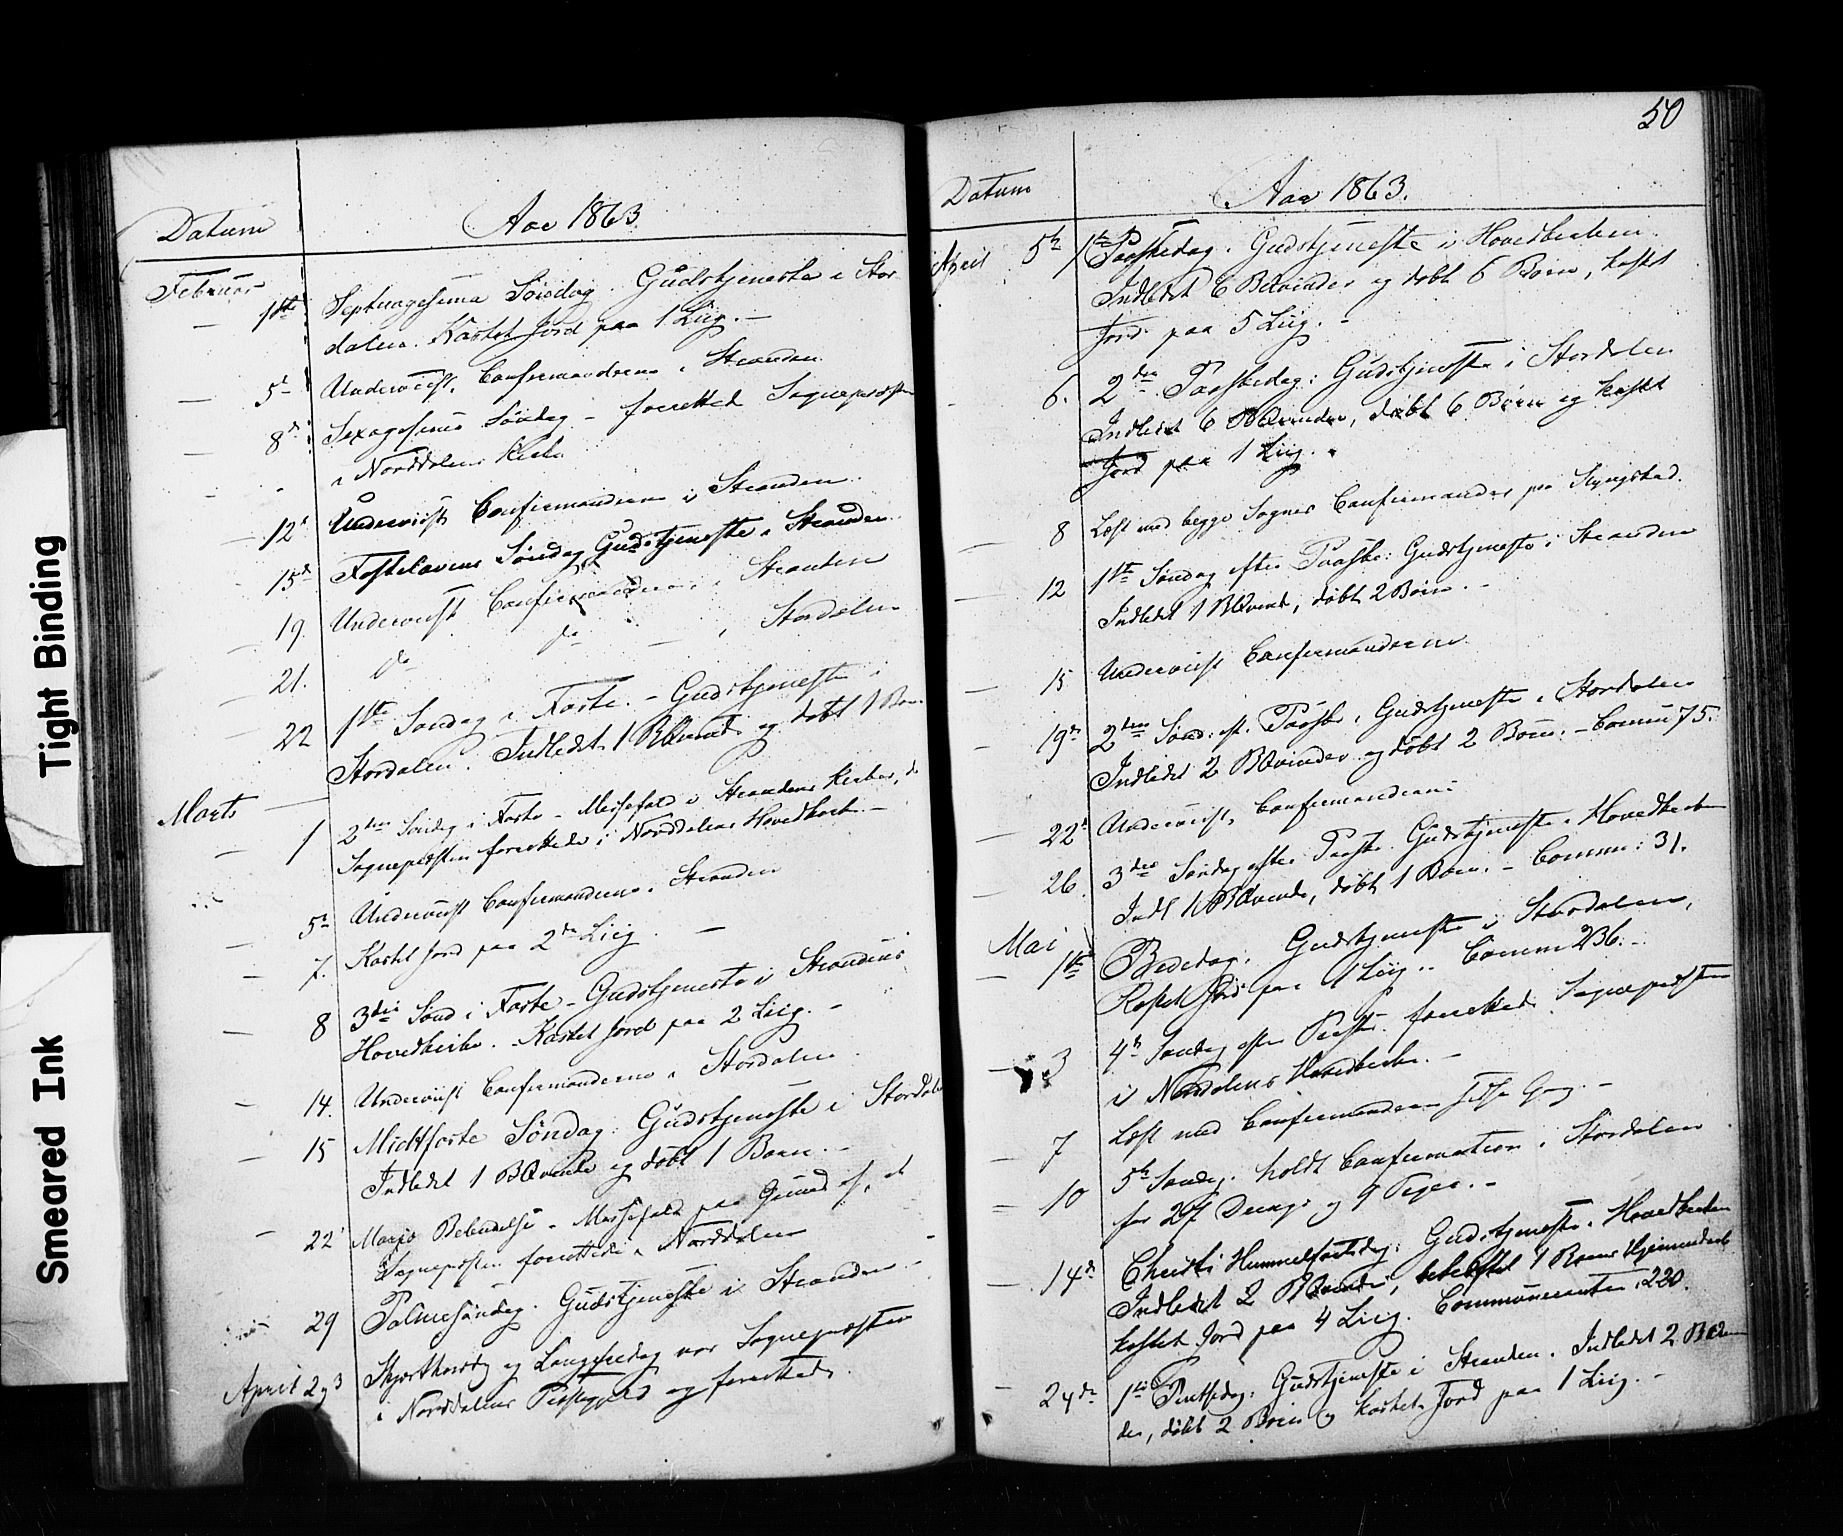 Tight Binding
Smeared Ink
Datum
Aar 1863.
Februar
1ste Septuagesima Søndag. Gudstjeneste i Stor
dalen. Kastet Jord paa 1 Liig. -
5te Underviist Confirmanderne i Stranden
8de Sexagesima Søndag - forrettede Sognepræsten
i Norddalens Kirke
12te Underviist Confirmanderne i Stranden.
15de Fastelavens Søndag Gudstjeneste i Stranden.
19. Underviist Confirmanderne i Stranden
21. do do - i Stordalen
22 1ste Søndag i Faste. - Gudstjeneste i
Stordalen. Indledet 1 BQvinde og døbt 1 Barn.
Marts
1 2den Søndag i Faste - Messefald i Strandens Kirke, da
Sognepræsten forrettede i Norddalens Hovedkirke. -
5te Underviist Confirmanderne i Stranden
7. Kastet Jord paa 2de Liig. -
8 3die Sønd i Faste - Gudstjeneste i Strandens
Hovedkirke. - Kastet Jord paa 2 Liig. -
14. Underviist Confirmanderne i Stordalen.
15 Midtfaste Søndag: Gudstjeneste i Stordalen
Indledet 1 BQvinde og døbt 1 Barn. -
22 Mariæ Bebudelse - Messefald paa Grund af, at
Sognepræsten forrettede i Norddalen
29 Palmesøndag. Gudstjeneste i Stranden -
April 2 og 3 Skjærthorsdg og Langfredag var Sognepræsten
i Norddalens Præstegjeld og forrettede.
50
Datum
Aar 1863.
April 5te 1ste Paaskedag. Gudstjeneste i Hovedkirken.
Indledet 6 BQvinder og døbt 6 Børn, kastet
Jord paa 5 Liig. -
6. 2den Paaskedag: Gudstjeneste i Stordalen
Indledet 6 BQvinder, døbt 6 Børn og kastet
Jord paa 1 Liig.
8 Læst med begge Sognes Confirmander paa
12 1ste Søndag efter Paaske: Gudstjeneste i Stranden
Indledet 1 BQvinde, døbt 2 Børn. -
15 Underviist Confirmanderne.
19de 2den Sønd: ef. Paaske, Gudstjeneste i Stordalen
Indledet 2 BQvinder og døbt 2 Børn. - Comm 75.
22de Underviist Confirmanderne
26. 3die Søndag efter Paaske. Gudstjeneste i Hovedkirken
Indl 1 BQvinde, døbt 1 Barn. - Comm: 31.
Mai
1ste Bededag. Gudstjeneste i Stordalen,
Kastet Jord paa 1 Liig. Comm 236. -
3 4de Søndag efter Paaske. forrettede Sognepræsten
i Norddalens Hovedkirke. -
7 Læst med Confirmanderne sidste Gang. -
10 5te Søndag. holdt Confirmation i Stordalen
for Drenge og 9 Piger. -
14de Christi Himmelfartsdag: Gudstjeneste i Hovedkirken
Indledet 2 BQvinder, bekræftet 1 Barns Hjemmedaab
kastet Jord paa 4 Liig. Communicanter 220.
24de 1ste Pintsedag: Gudstjeneste i Stranden. Indledet 2 BQvin
der, døbt 2 Børn og kastet Jord paa 1 Liig. -